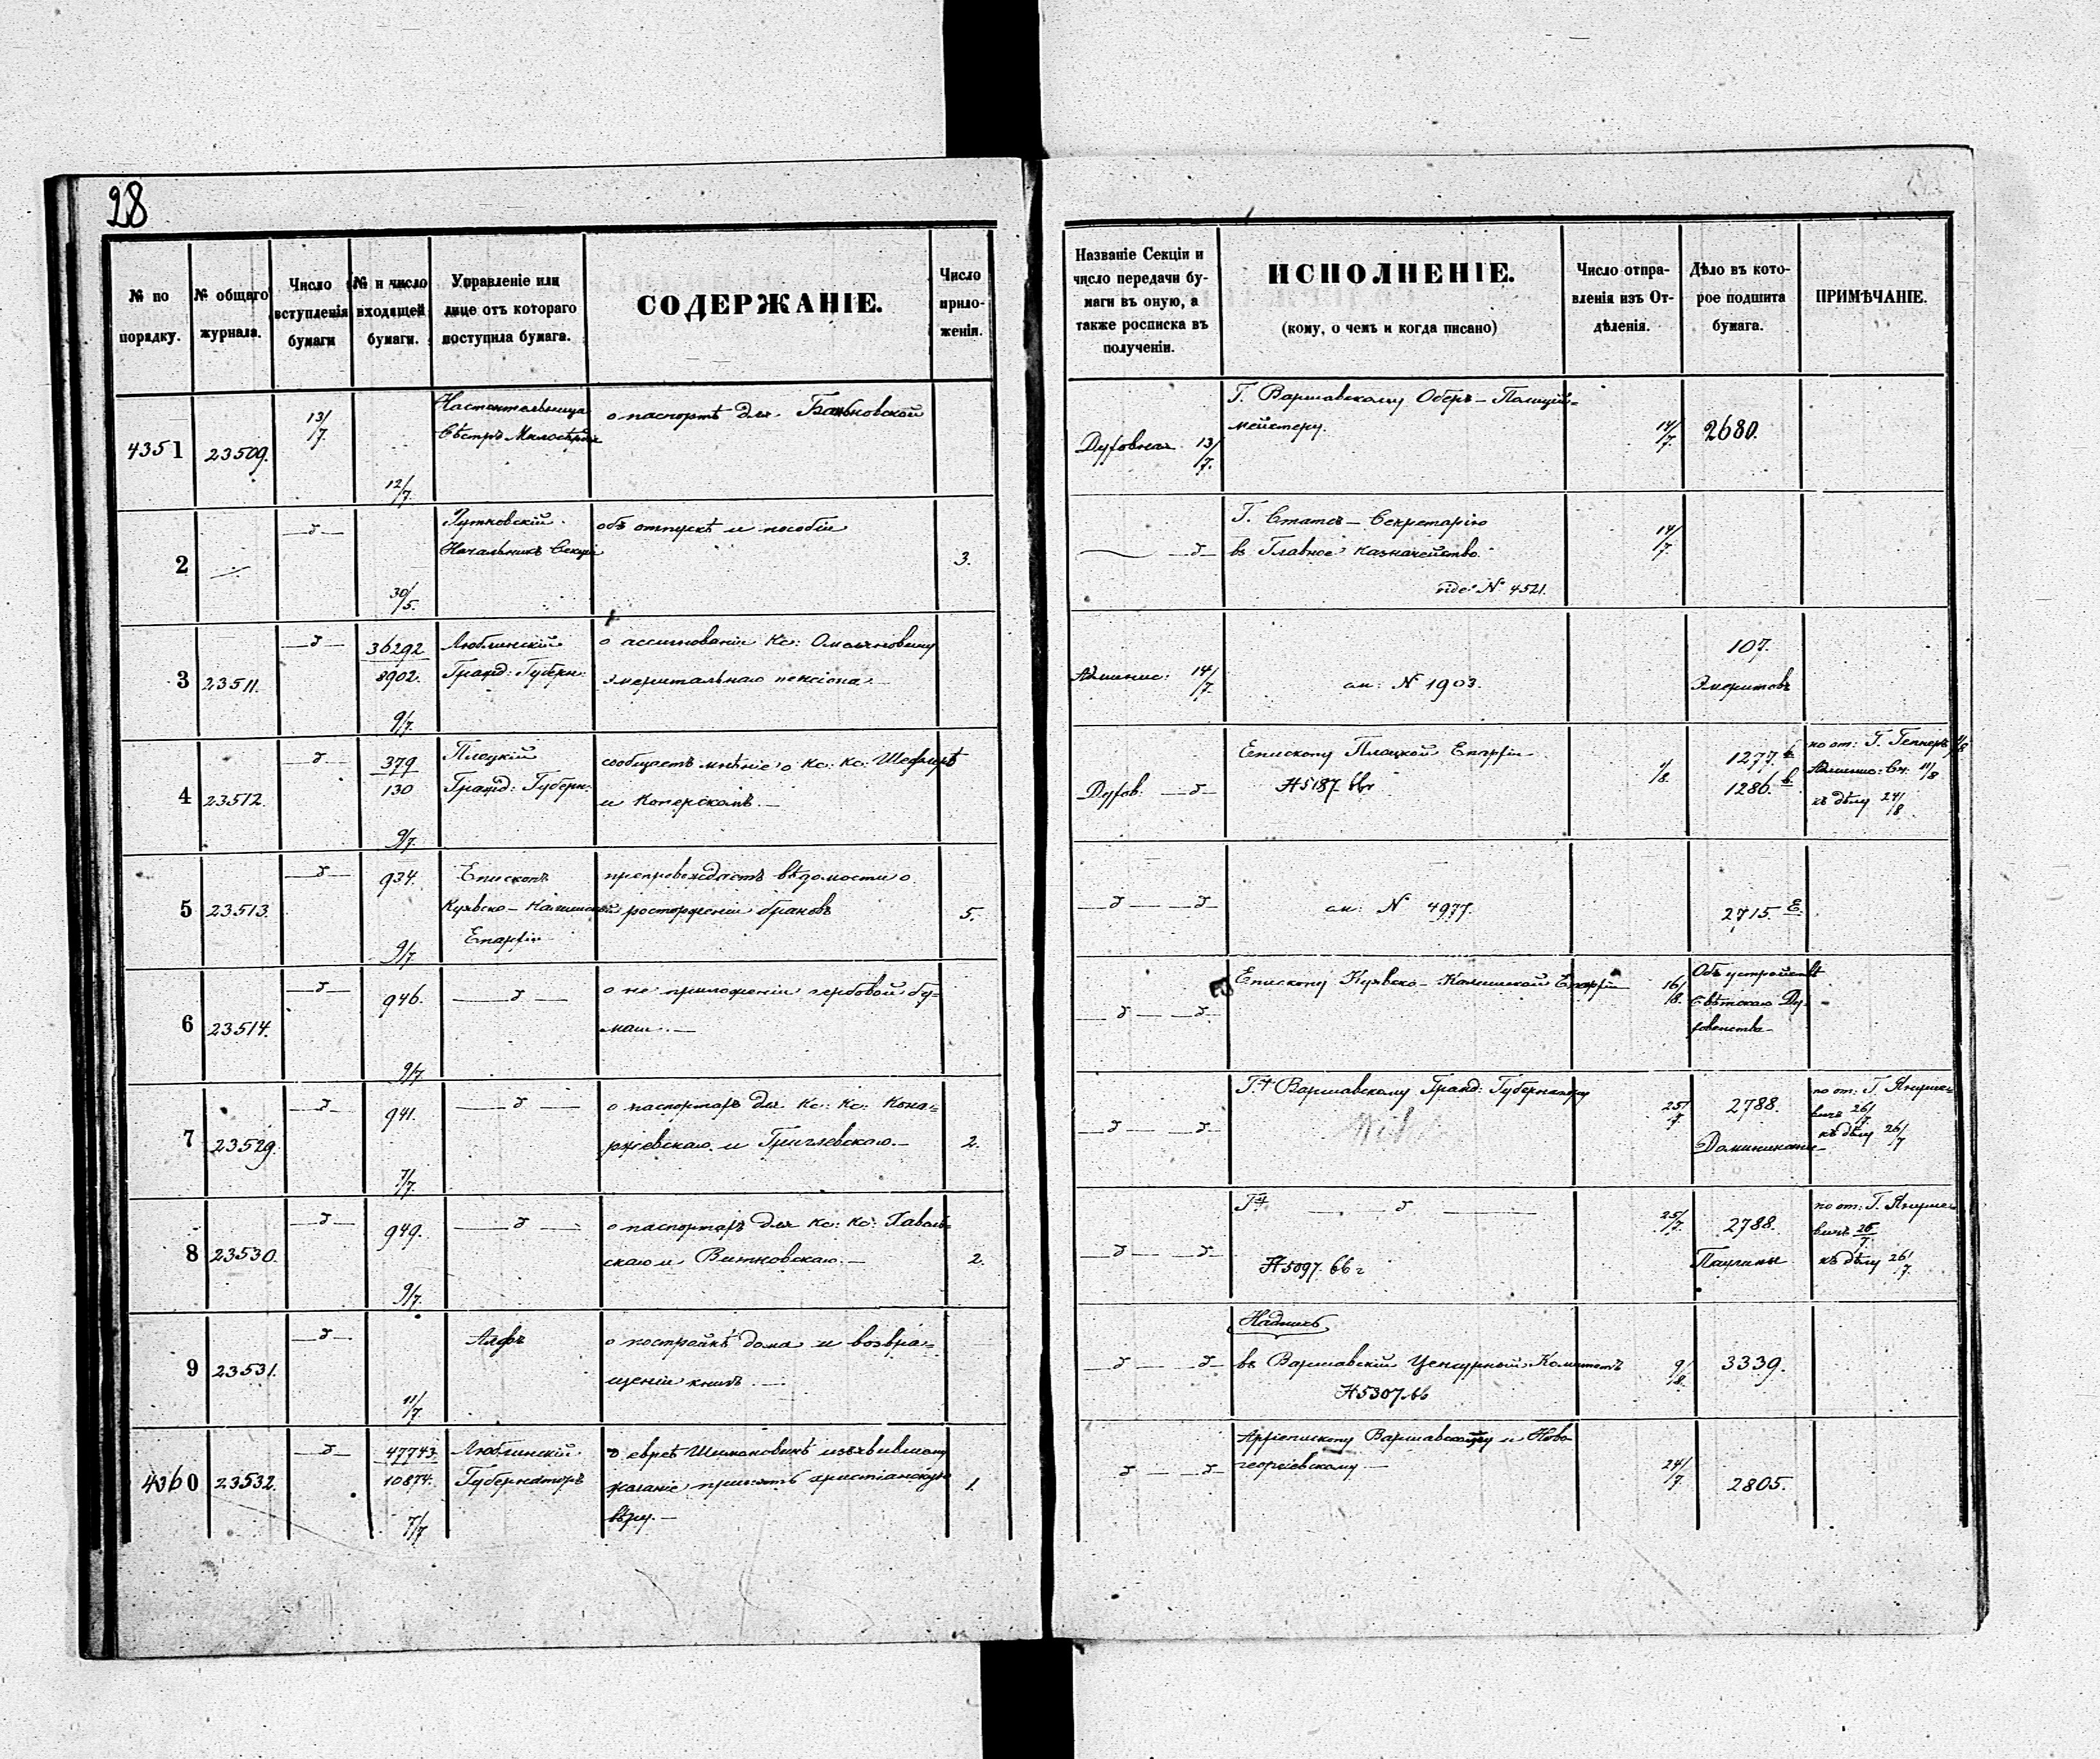 28
№ по порядку.
№ общаго журнала.
Число вступленія бумаги
№ и число входящей бумаги.
Управленіе или лице отъ котораго поступила бумага.
СОДЕРЖАНІЕ.
Число приложенія.
Названіе Секціи и число передачи бумаги въ оную, а также росписка въ полученіи.
ИСПОЛНЕНІЕ.
(кому, о чемъ и когда писано)
Число отправленія изъ Отдѣленія.
Дѣло въ которое подшита бумага.
ПРИМѢЧАНІЕ.
4351 23509. 13/7 12/7.
Настоятельница
Сѣстръ Милосѣрдія
о паспортѣ для
Духовная 13/7.
Г. Варшавскому Оберъ-Полицій=
мейстеру.
14/7. 2680.
2 30/5.
Начальникъ Секціи
объ отпускѣ и пособіи
3.
Г. Статсъ-Секретарію
въ Главное Казначейство.
vide № 4521.
14/7.
3 23511. 36292/8902. 9/7.
Люблинскій
Гражд: Губерн:
о ассигнованіи Кс:
эмеритальнаго пенсіона.
Админис: 14/7.
см: № 1903.
107.
Эмеритовъ
4 23512. 379/130 9/7.
Плоцкій
Гражд: Губерн:
сообщаетъ мнѣніе о Кс: Кс:
и
Духов.
Епископу Плоцкой Епархіи
№ 5187. 66г
1/8.
1277.
1286.
по от: Г.
къ дѣлу 24/8
5 23513. 934. 9/7.
Епископъ
Куявско-Калишской
Епархіи
препровождаетъ вѣдомости о
расторженіи браковъ
5.
см: № 4977.
2715. Е.
6 23514. 946. 9/7
о не приложеніи гербовой бу=
маги.
Епископу Куявско-Калишской Епархіи
16/8.
Объ устройствѣ
Свѣтскаго Ду=
ховенства
7 23529. 941. 7/7.
о паспортахъ для Кс: Кс: Кона=
ржевскаго и
2.
Варшавскому Гражд: Губернатору
25/7
2788.
Доминикане
по от: Г. Януше=
вичъ 26/7.
къ дѣлу 26/7
8 23530. 949. 9/7.
о паспортахъ для Кс: Кс:
скаго и Витковскаго.
2.
№ 5097. 66 г
25/7.
2788.
Паулины
по от: Г. Януше=
вичъ 26/7.
къ дѣлу 26/7.
9 23531. 11/7.
о постройкѣ дома и возвра=
щеніи книгъ.
Надпись
въ Варшавскій Ценсурный Комитетъ
№ 5307. 66
9/8.
3339.
4360 23532. 47743/10874. 7/7
Люблинскій
Губернаторъ
о евреѣ Шимановичѣ изъявившему
желаніе принять христіанскую
вѣру.
1.
Архіепископу Варшавскому и Ново
георгіевскому
24/7.
2805.